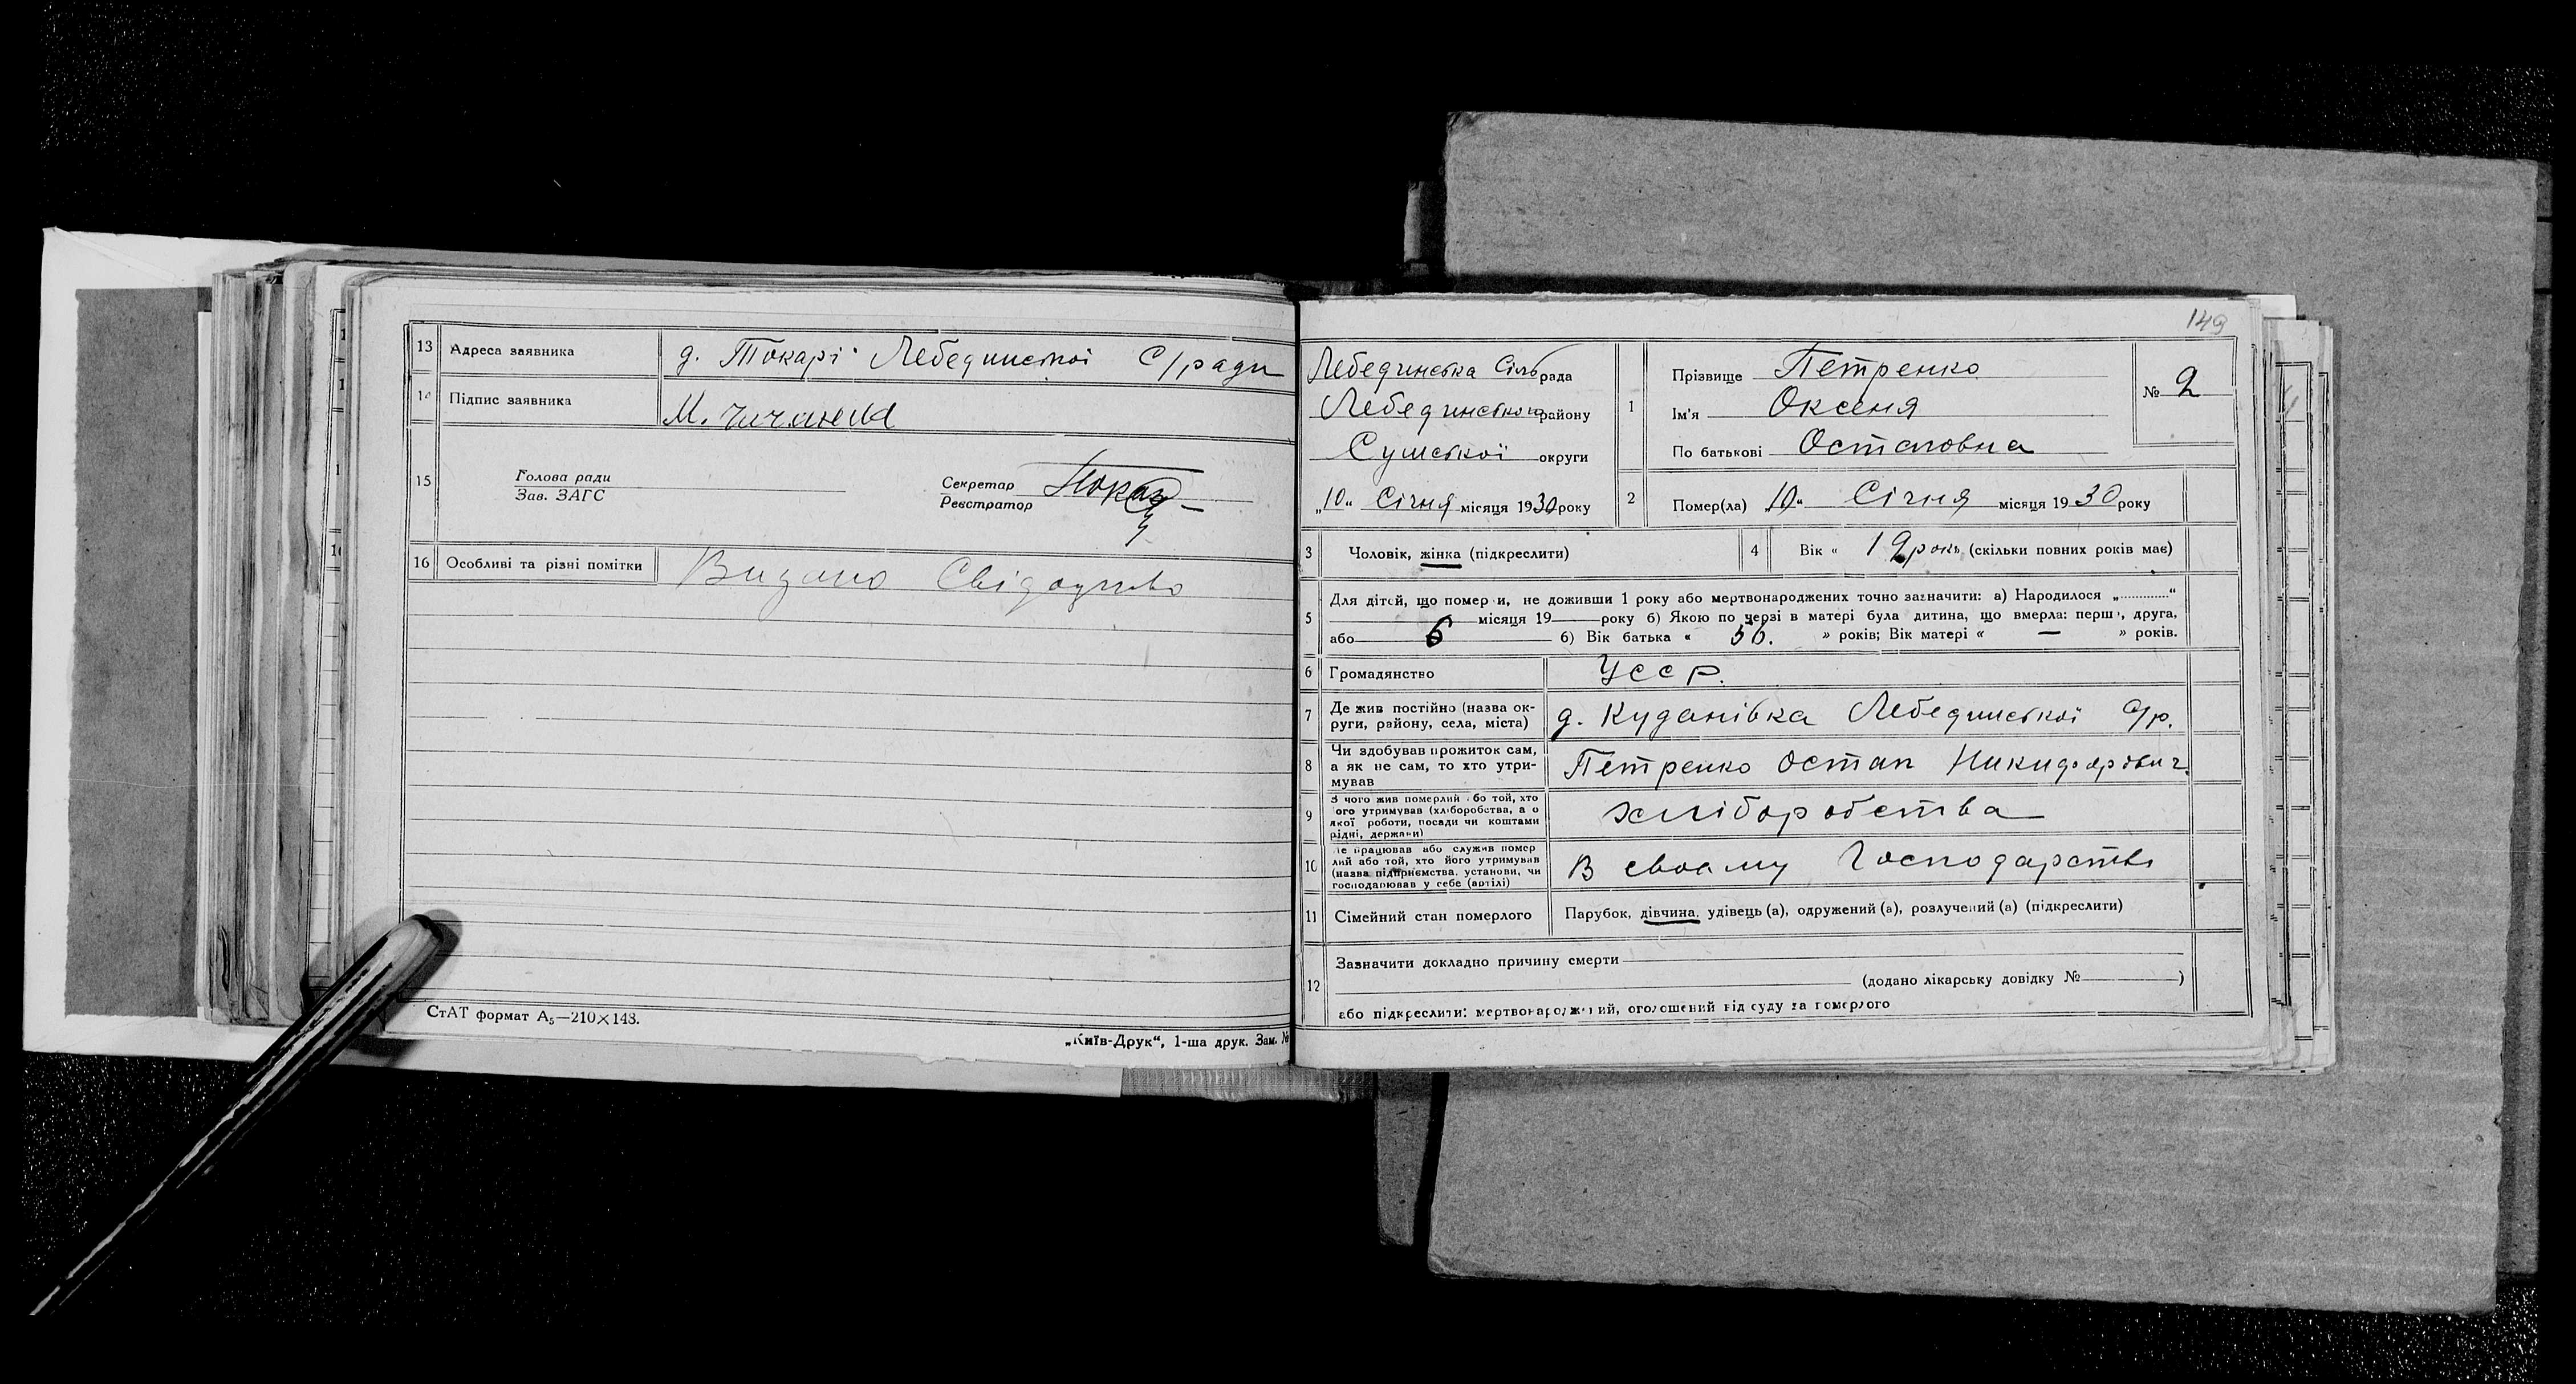 13 Адреса заявника д. Токарі Лебединської С/ради
14 Підпис заявника М.
15 Голова ради
Зав. ЗАГС
Секретар
Реєстратор
16 Особливі та різні помітки Видано Свідоцтво
СтАТ формат А₅—210×148.
„Київ-Друк“, 1-ша друк. Зам. №
149
Лебединська Сільрада
Лебединського району
Сумської округи
„10“ Січня місяця 1930 року
1 Прізвище Петренко
Ім'я Оксеня
По батькові Остаповна
№ 2
2 Помер(ла) „10“ Січня місяця 1930 року
3 Чоловік, жінка (підкреслити)
4 Вік « 19 рокъ (скільки повних років має)
5 Для дітей, що померли, не доживши 1 року або мертвонароджених точно зазначити: а) Народилося „.............“
місяця 19 року б) Якою по черзі в матері була дитина, що вмерла: перша, друга,
або 6 б) Вік батька « 56. » років; Вік матері « — » років.
6 Громадянство УССР.
7 Де жив постійно (назва ок-
руги, району, села, міста) д. Куданівка Лебединської с/р.
8 Чи здобував прожиток сам,
а як не сам, то хто утри-
мував Петренко Остап Никифорович
9 З чого жив померлий або той, хто
його утримував (хліборобства, а о
якої роботи, посади чи коштами
рідні, держави) хліборобства
10 Де працював або служив помер
лий або той, хто його утримував
(назва підприємства, установи, чи
господарював у себе (артілі) В своему Господарстві
11 Сімейний стан померлого Парубок, дівчина, удівець (а), одружений (а), розлучений (а) (підкреслити)
12 Зазначити докладно причину смерти
(додано лікарську довідку № )
або підкреслити: мертвонароджений, оголошений від суду за померлого